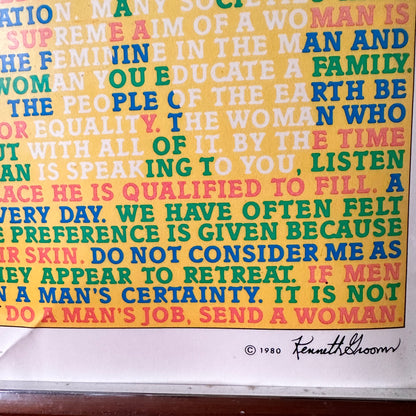 ATION. MANY SOCIETIES
SUPREME AIM OF A WOMAN IS
THE FEMININE IN THE MAN AND
WOMAN YOU EDUCATE A FAMILY.
THE PEOPLE OF THE EARTH BE
OR EQUALITY. THE WOMAN WHO
UT WITH ALL OF IT. BY THE TIME
AN IS SPEAKING TO YOU, LISTEN
LACE HE IS QUALIFIED TO FILL. A
VERY DAY. WE HAVE OFTEN FELT
E PREFERENCE IS GIVEN BECAUSE
IR SKIN. DO NOT CONSIDER ME AS
HEY APPEAR TO RETREAT. IF MEN
N A MAN'S CERTAINTY. IT IS NOT
DO A MAN'S JOB, SEND A WOMAN.
© 1980 Kenneth Grooms